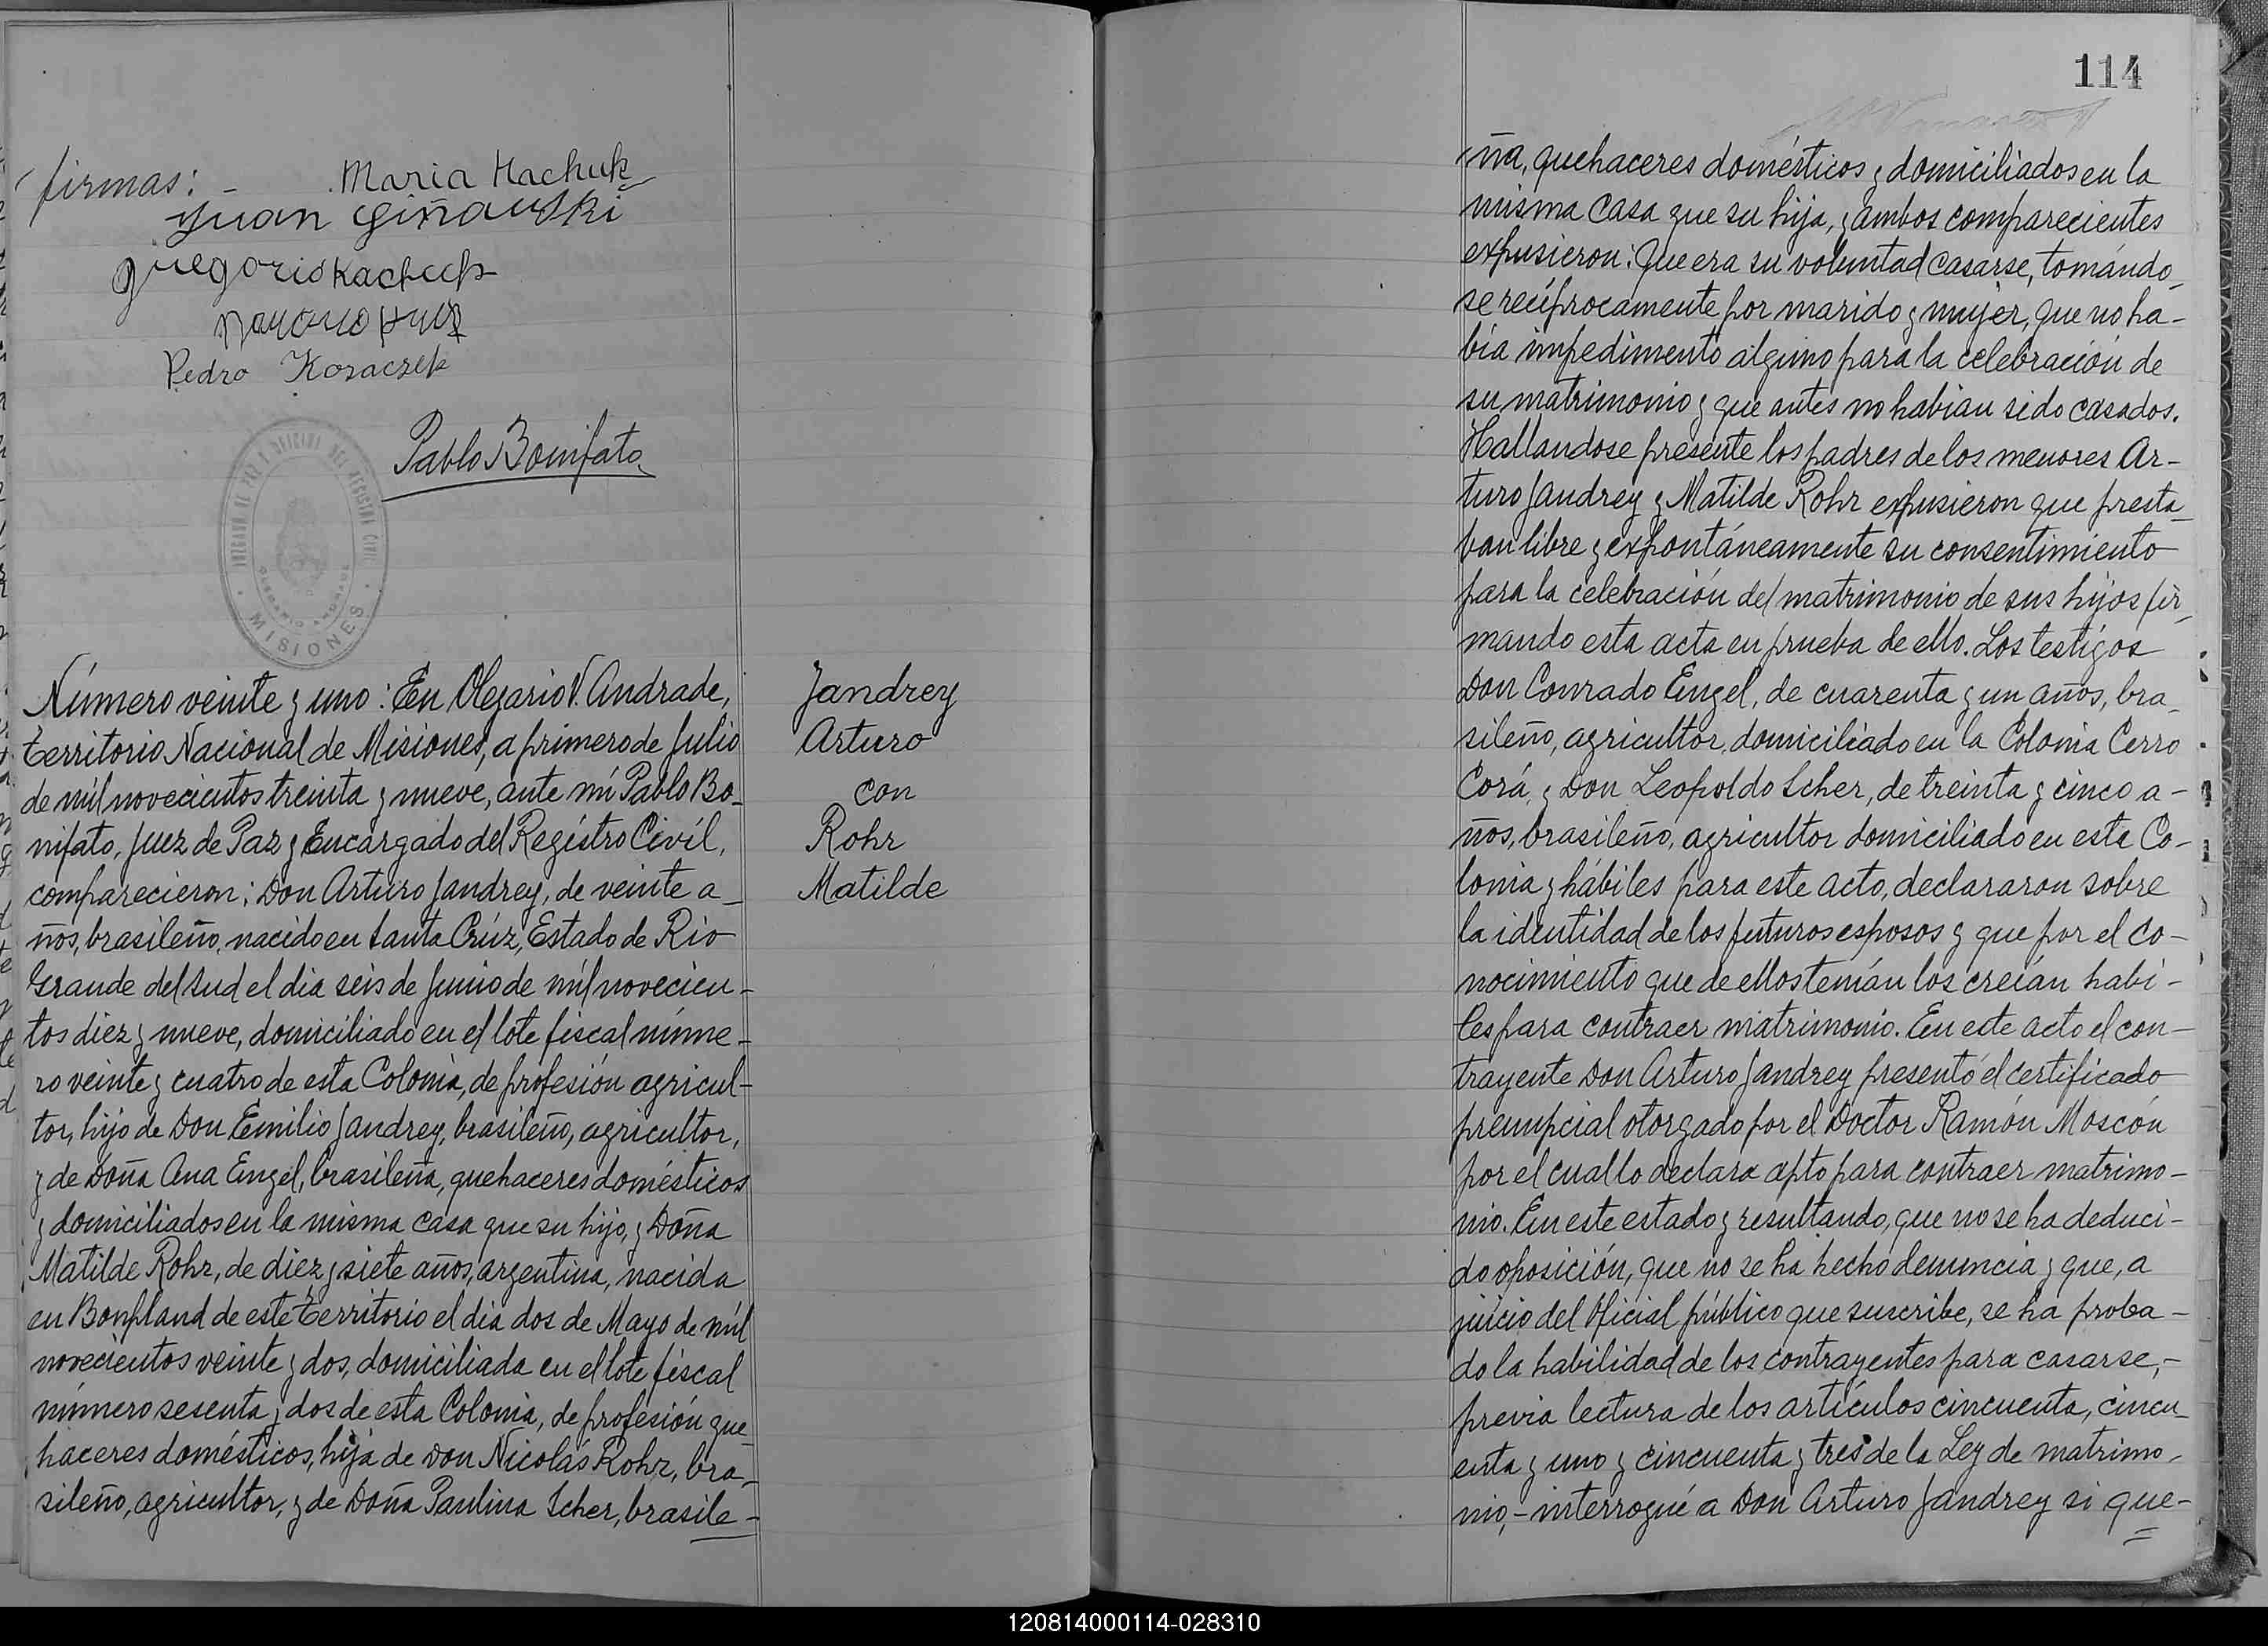 firmas: -
Maria Hachuk
Juan Giñauski
Pedro Kozaczek
Pablo Bonifato
JUZGADO DE PAZ Y OFICINA DEL REGISTRO CIVIL
OLEGARIO V. ANDRADE
MISIONES
Número veinte y uno: En Olegario V. Andrade,
territorio Nacional de Misiones, a primero de Julio
de mil novecientos treinta y nueve, ante mi Pablo Bo-
nifato, Juez de Paz y Encargado del Registro Civil,
comparecieron: Don Arturo Jandrey, de veinte a-
ños, brasileño, nacido en Santa Crúz, Estado de Rio
Grande del Sud el dia seis de Junio de mil novecien-
tos diez y nueve, domiciliado en el lote fiscal núme-
ro veinte y cuatro de esta Colonia, de profesión agricul-
tor, hijo de Don Emilio Jandrey, brasileño, agricultor,
y de Doña Ana Engel, brasileña, quehaceres domésticos
y domiciliados en la misma casa que su hijo, y Doña
Matilde Rohr, de diez y siete años, argentina, nacida
en Bonpland de este territorio el dia dos de Mayo de mil
novecientos veinte y dos, domiciliada en el lote fiscal
número sesenta y dos de esta Colonia, de profesión que-
haceres domésticos, hija de Don Nicolás Rohr, bra-
sileño, agricultor, y de Doña Paulina Scher, brasile-
Jandrey
Arturo
con
Rohr
Matilde
114
ña, quehaceres domésticos y domiciliados en la
misma casa que su hija, y ambos comparecientes
expusieron: Que era su voluntad casarse, tomándo-
se recíprocamente por marido y mujer, que no ha-
bia impedimento alguno para la celebración de
su matrimonio y que antes no habian sido casados.
Hallandose presente los padres de los menores Ar-
turo Jandrey y Matilde Rohr expusieron que presta-
ban libre y expontáneamente su consentimiento
para la celebración del matrimonio de sus hijos fir-
mando esta acta en prueba de ello. Los testigos
Don Conrado Engel, de cuarenta y un años, bra-
sileño, agricultor, domiciliado en la Colonia Cerro
Corá, y Don Leopoldo Scher, de treinta y cinco a-
ños, brasileño, agricultor domiciliado en esta Co-
lonia y hábiles para este acto, declararon sobre
la identidad de los futuros esposos y que por el co-
nocimiento que de ellos tenían los creían habi-
les para contraer matrimonio. En este acto el con-
trayente Don Arturo Jandrey presentó el certificado
prenupcial otorgado por el Doctor Ramón Moscón
por el cual lo declara apto para contraer matrimo-
nio. En este estado y resultando, que no se ha deduci-
do oposición, que no se ha hecho denuncia y que, a
juicio del Oficial público que suscribe, se ha proba-
do la habilidad de los contrayentes para casarse,-
previa lectura de los artículos cincuenta, cincu-
enta y uno y cincuenta y tres de la Ley de matrimo-
nio,- interrogué a Don Arturo Jandrey si que-
120814000114-028310